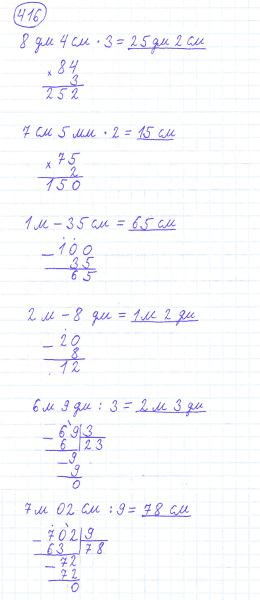 416
8 дм 4 см · 3 = 25 дм 2 см
× 84
3
252
7 см 5 мм · 2 = 15 см
× 75
2
150
1 м – 35 см = 65 см
– 100
35
65
2 м – 8 дм = 1 м 2 дм
– 20
8
12
6 м 9 дм : 3 = 2 м 3 дм
– 69 | 3
6 | 23
– 9
9
0
7 м 02 см : 9 = 78 см
– 702 | 9
63 | 78
– 72
72
0